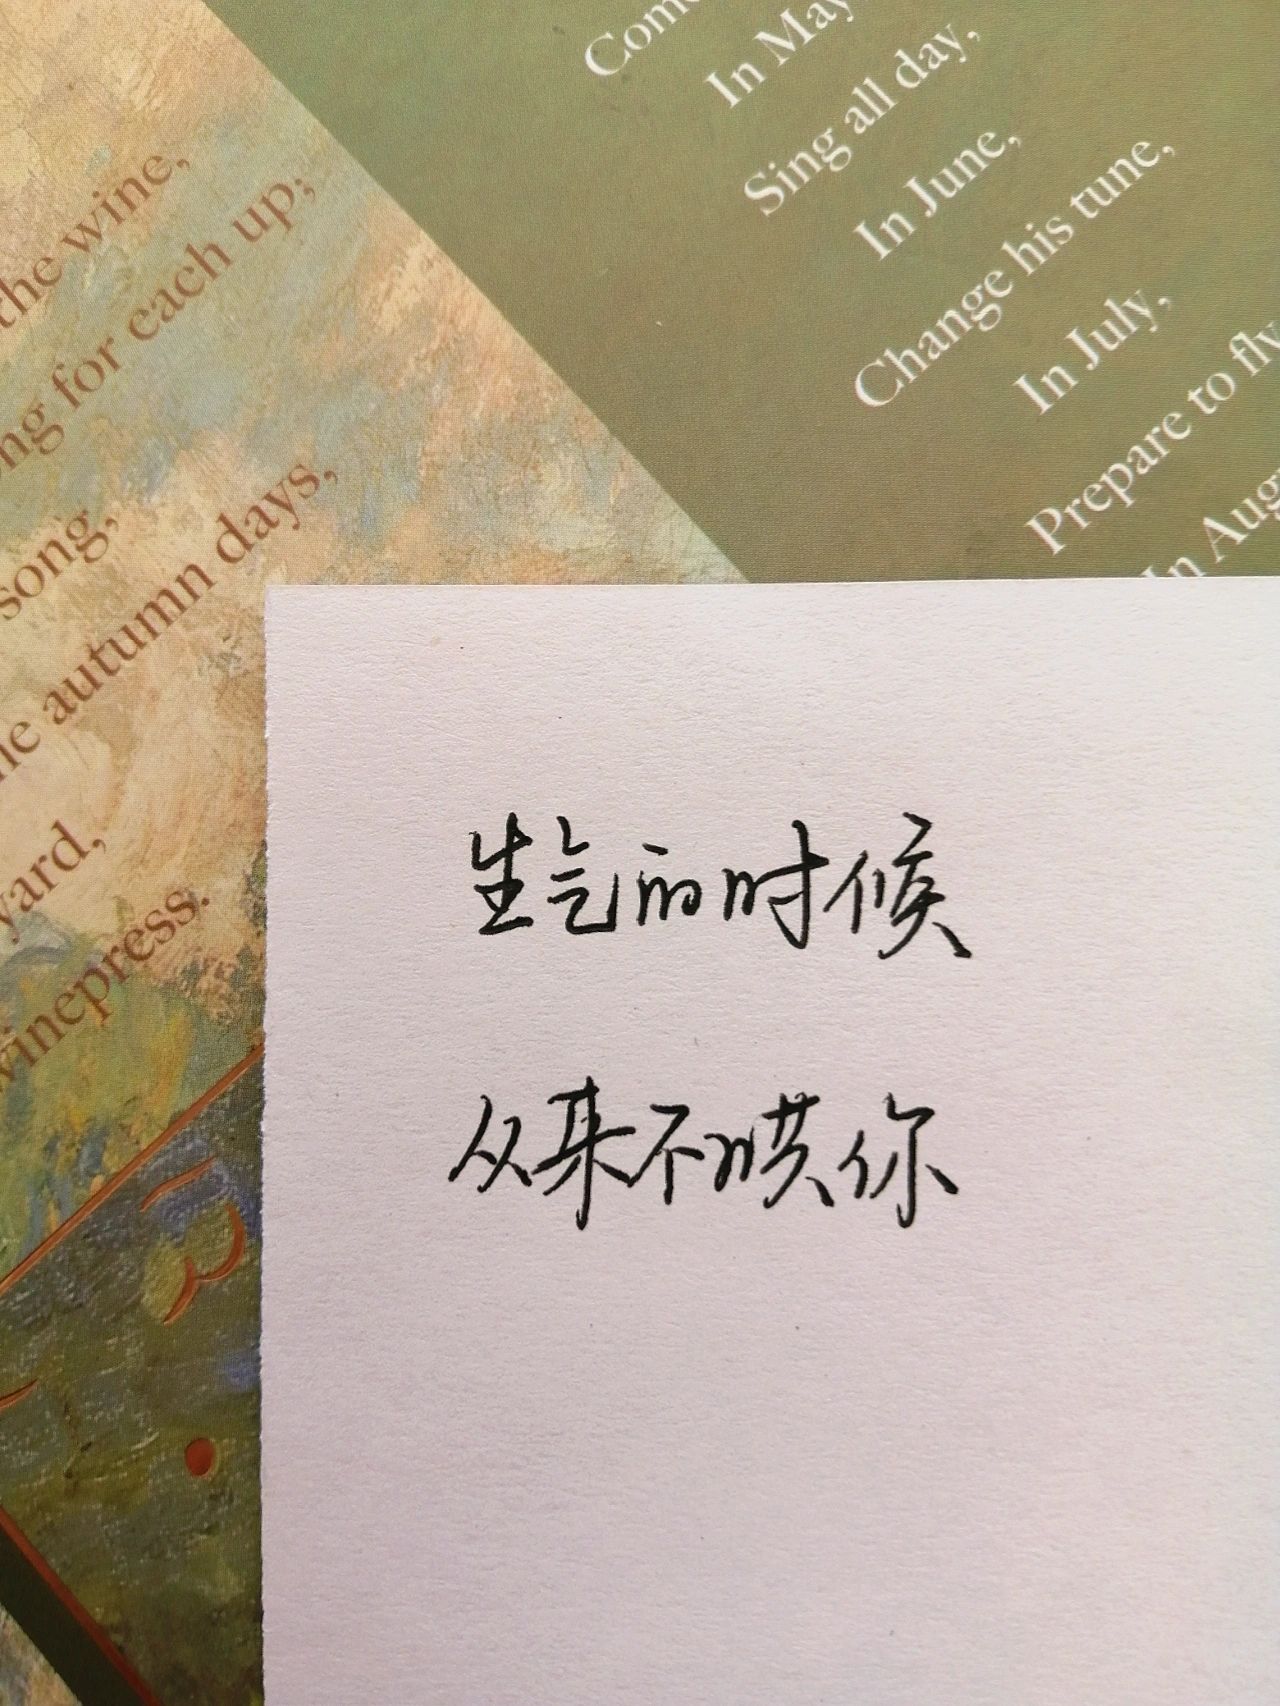 Com
In May,
Sing all day,
In June,
Change his tune,
In July,
Prepare to fly
In Aug
the wine,
ng for each up;
song,
he autumn days,
yard,
winepress.
生气的时候
从来不哄你